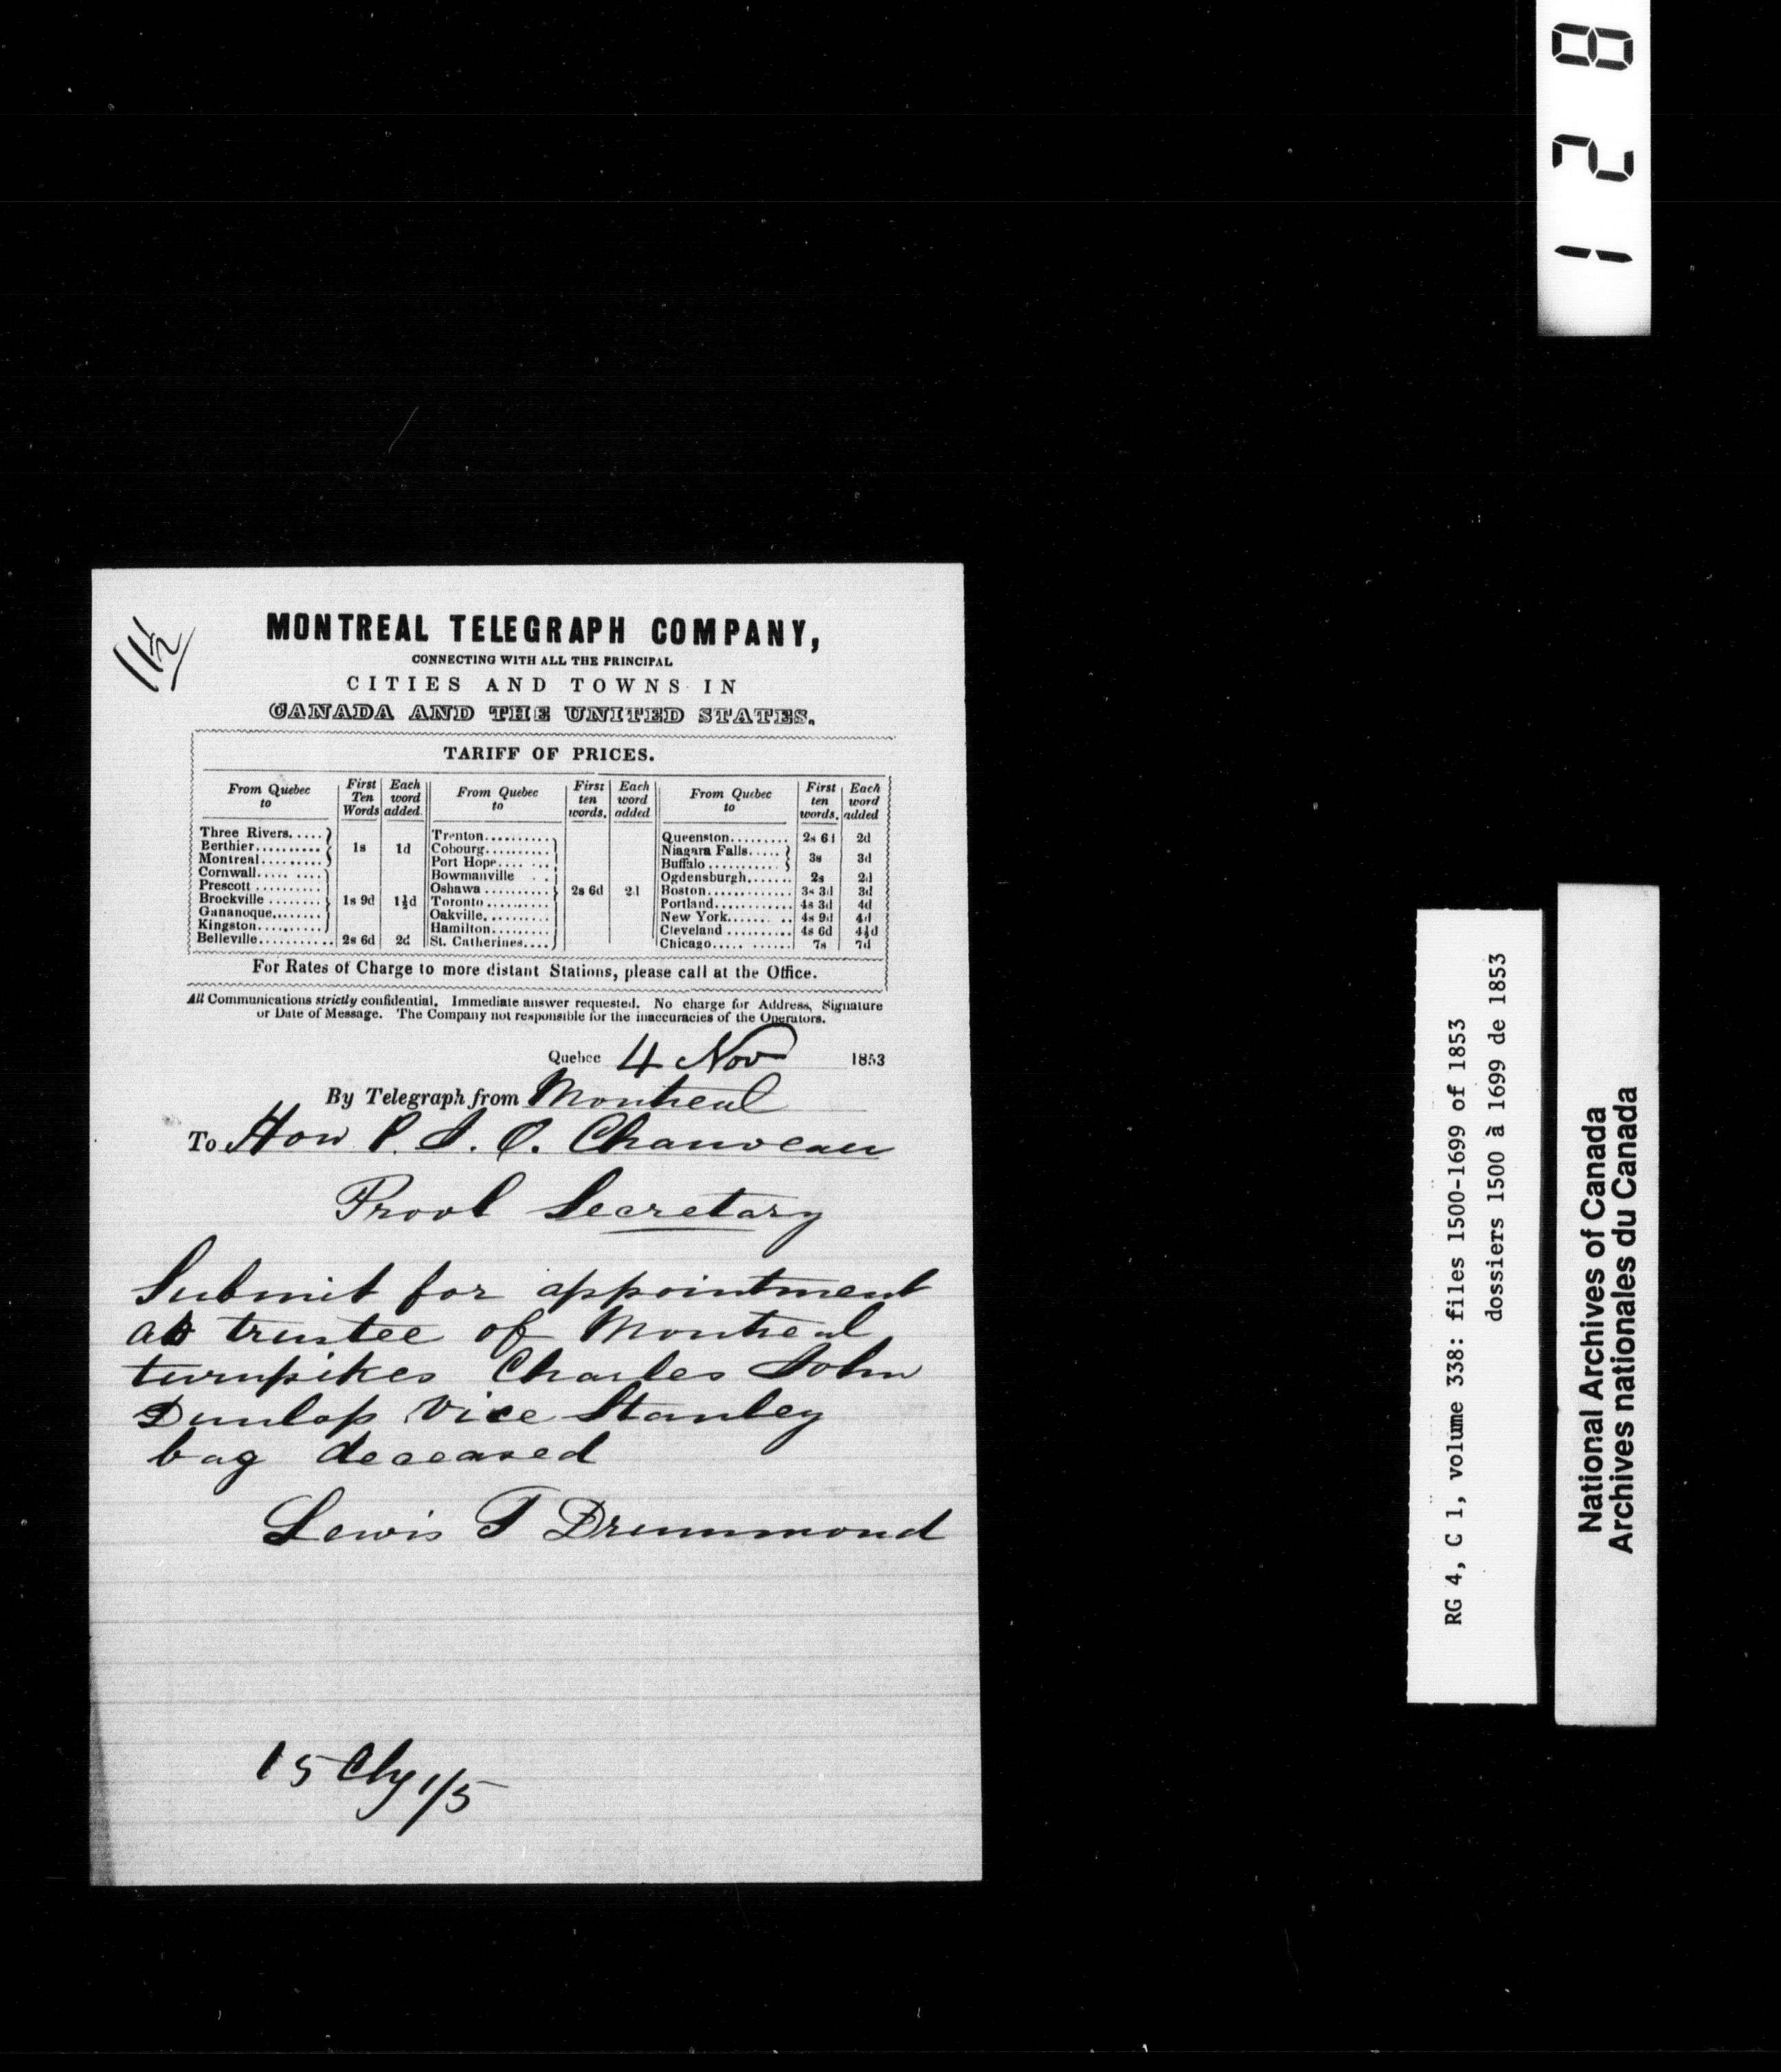 128
11½
MONTREAL TELEGRAPH COMPANY,
CONNECTING WITH ALL THE PRINCIPAL
CITIES AND TOWNS IN
CANADA AND THE UNITED STATES.
TARIFF OF PRICES.
From Quebec to | First Ten Words | Each word added. | From Quebec to | First ten words. | Each word added | From Quebec to | First ten words. | Each word added
Three Rivers..... | Trenton.......... | Queenston......... 2s 6d 2d
Berthier.......... 1s 1d | Cobourg.......... | Niagara Falls.....
Montreal......... | Port Hope.... ... | Buffalo ........... 3s 3d
Cornwall..... ..... | Bowmanville . . | Ogdensburgh....... 2s 2d
Prescott .......... | Oshawa .......... 2s 6d 2d | Boston............. 3s 3d 3d
Brockville ........ 1s 9d 1½d | Toronto.......... | Portland............ 4s 3d 4d
Gananoque........ | Oakville.......... | New York....... .. 4s 9d 4d
Kingston.......... | Hamilton......... | Cleveland .......... 4s 6d 4½d
Belleville........... 2s 6d 2d | St. Catherines.... | Chicago..... ...... 7s 7d
For Rates of Charge to more distant Stations, please call at the Office.
All Communications strictly confidential. Immediate answer requested. No charge for Address, Signature
or Date of Message. The Company not responsible for the inaccuracies of the Operators.
Quebec 4 Nov 1853
By Telegraph from Montreal
To Hon P. J. O. Chauveau
Provl Secretary
Submit for appointment
as trustee of Montreal
turnpikes Charles John
Dunlop vice Stanley
bag deceased
Lewis T Drummond
15 Chg 1/5
RG 4, C 1, volume 338: files 1500-1699 of 1853
dossiers 1500 à 1699 de 1853
National Archives of Canada
Archives nationales du Canada